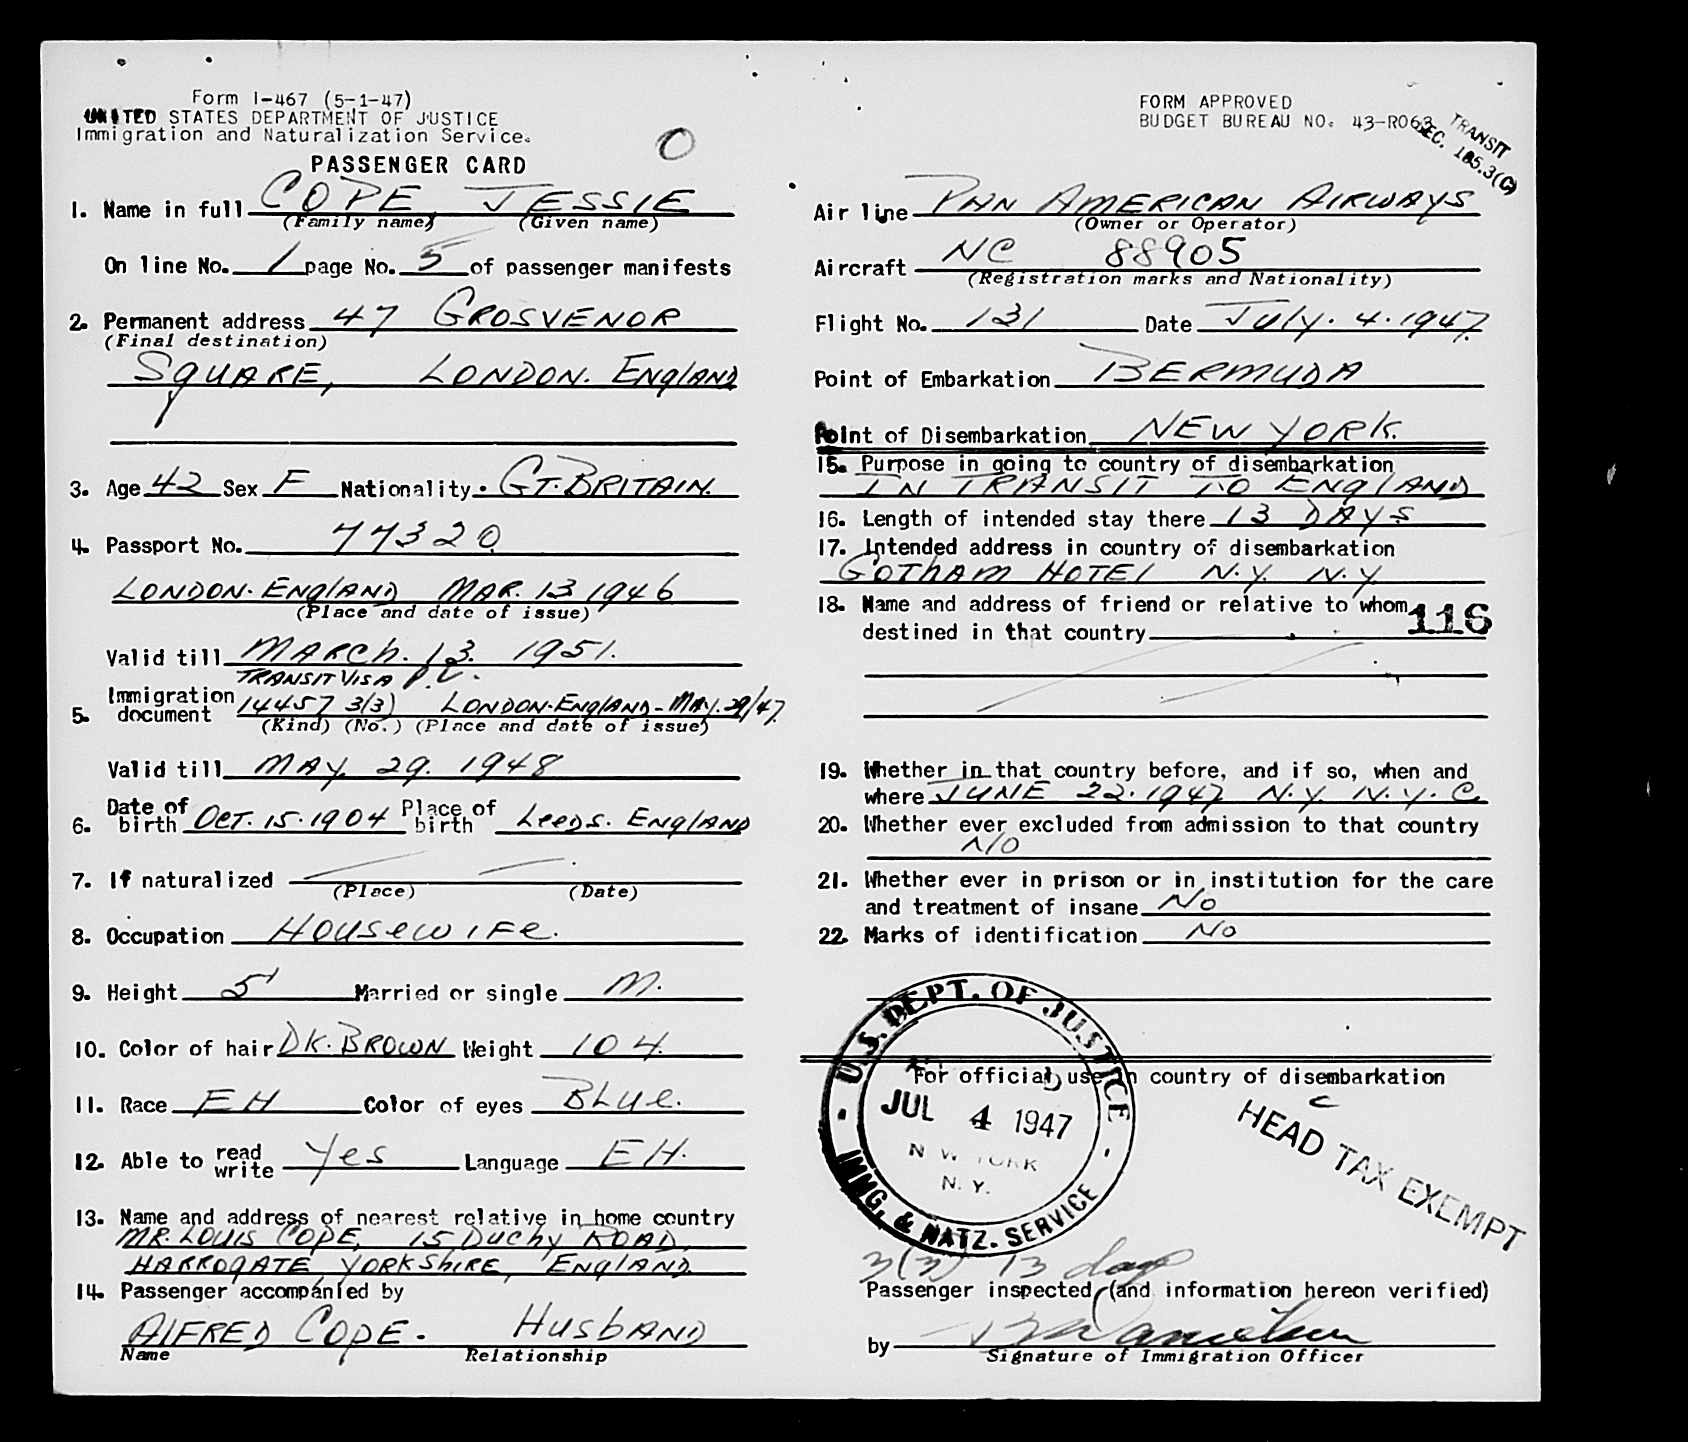 Form I-467 (5-1-47)
UNITED STATES DEPARTMENT OF JUSTICE
Immigration and Naturalization Service.
PASSENGER CARD
O
1. Name in full COPE JESSIE
(Family name) (Given name)
On line No. 1 page No. 5 of passenger manifests
2. Permanent address 47 GROSVENOR
(Final destination)
SQUARE, LONDON. ENGLAND
3. Age 42 Sex F Nationality. GT. BRITAIN.
4. Passport No. 77320
LONDON. ENGLAND MAR. 13 1946
(Place and date of issue)
Valid till MARCH. 13. 1951.
TRANSIT VISA
5. Immigration document 14457 3(3) LONDON. ENGLAND - MAY. 29/47.
(Kind) (No.) (Place and date of issue)
Valid till MAY. 29. 1948
6. Date of birth OCT. 15. 1904 Place of birth LEEDS. ENGLAND
7. If naturalized
(Place) (Date)
8. Occupation HOUSEWIFE.
9. Height 5' Married or single M.
10. Color of hair DK. BROWN Weight 104.
11. Race EH Color of eyes BLUE.
12. Able to read write Yes Language EH.
13. Name and address of nearest relative in home country
MR. LOUIS COPE, 15 DUCHY ROAD,
HARROGATE, YORKSHIRE, ENGLAND.
14. Passenger accompanied by
ALFRED COPE. HUSBAND
Name Relationship
FORM APPROVED
BUDGET BUREAU NO. 43-R063
TRANSIT
SEC. 105.3(C)
Air line PAN AMERICAN AIRWAYS
(Owner or Operator)
Aircraft NC 88905
(Registration marks and Nationality)
Flight No. 131 Date JULY. 4. 1947.
Point of Embarkation BERMUDA
Point of Disembarkation NEW YORK.
15. Purpose in going to country of disembarkation
IN TRANSIT TO ENGLAND
16. Length of intended stay there 13 DAYS
17. Intended address in country of disembarkation
GOTHAM HOTEL N.Y. N.Y.
18. Name and address of friend or relative to whom
destined in that country
116
19. Whether in that country before, and if so, when and
where JUNE 22. 1947 N.Y. N.Y. C.
20. Whether ever excluded from admission to that country
NO
21. Whether ever in prison or in institution for the care
and treatment of insane NO
22. Marks of identification NO
For official use in country of disembarkation
U.S. DEPT. OF JUSTICE
JUL 4 1947
NEW YORK
N. Y.
IMMG. & NATZ. SERVICE
C
HEAD TAX EXEMPT
3(3) 13 days
Passenger inspected (and information hereon verified)
by
Signature of Immigration Officer